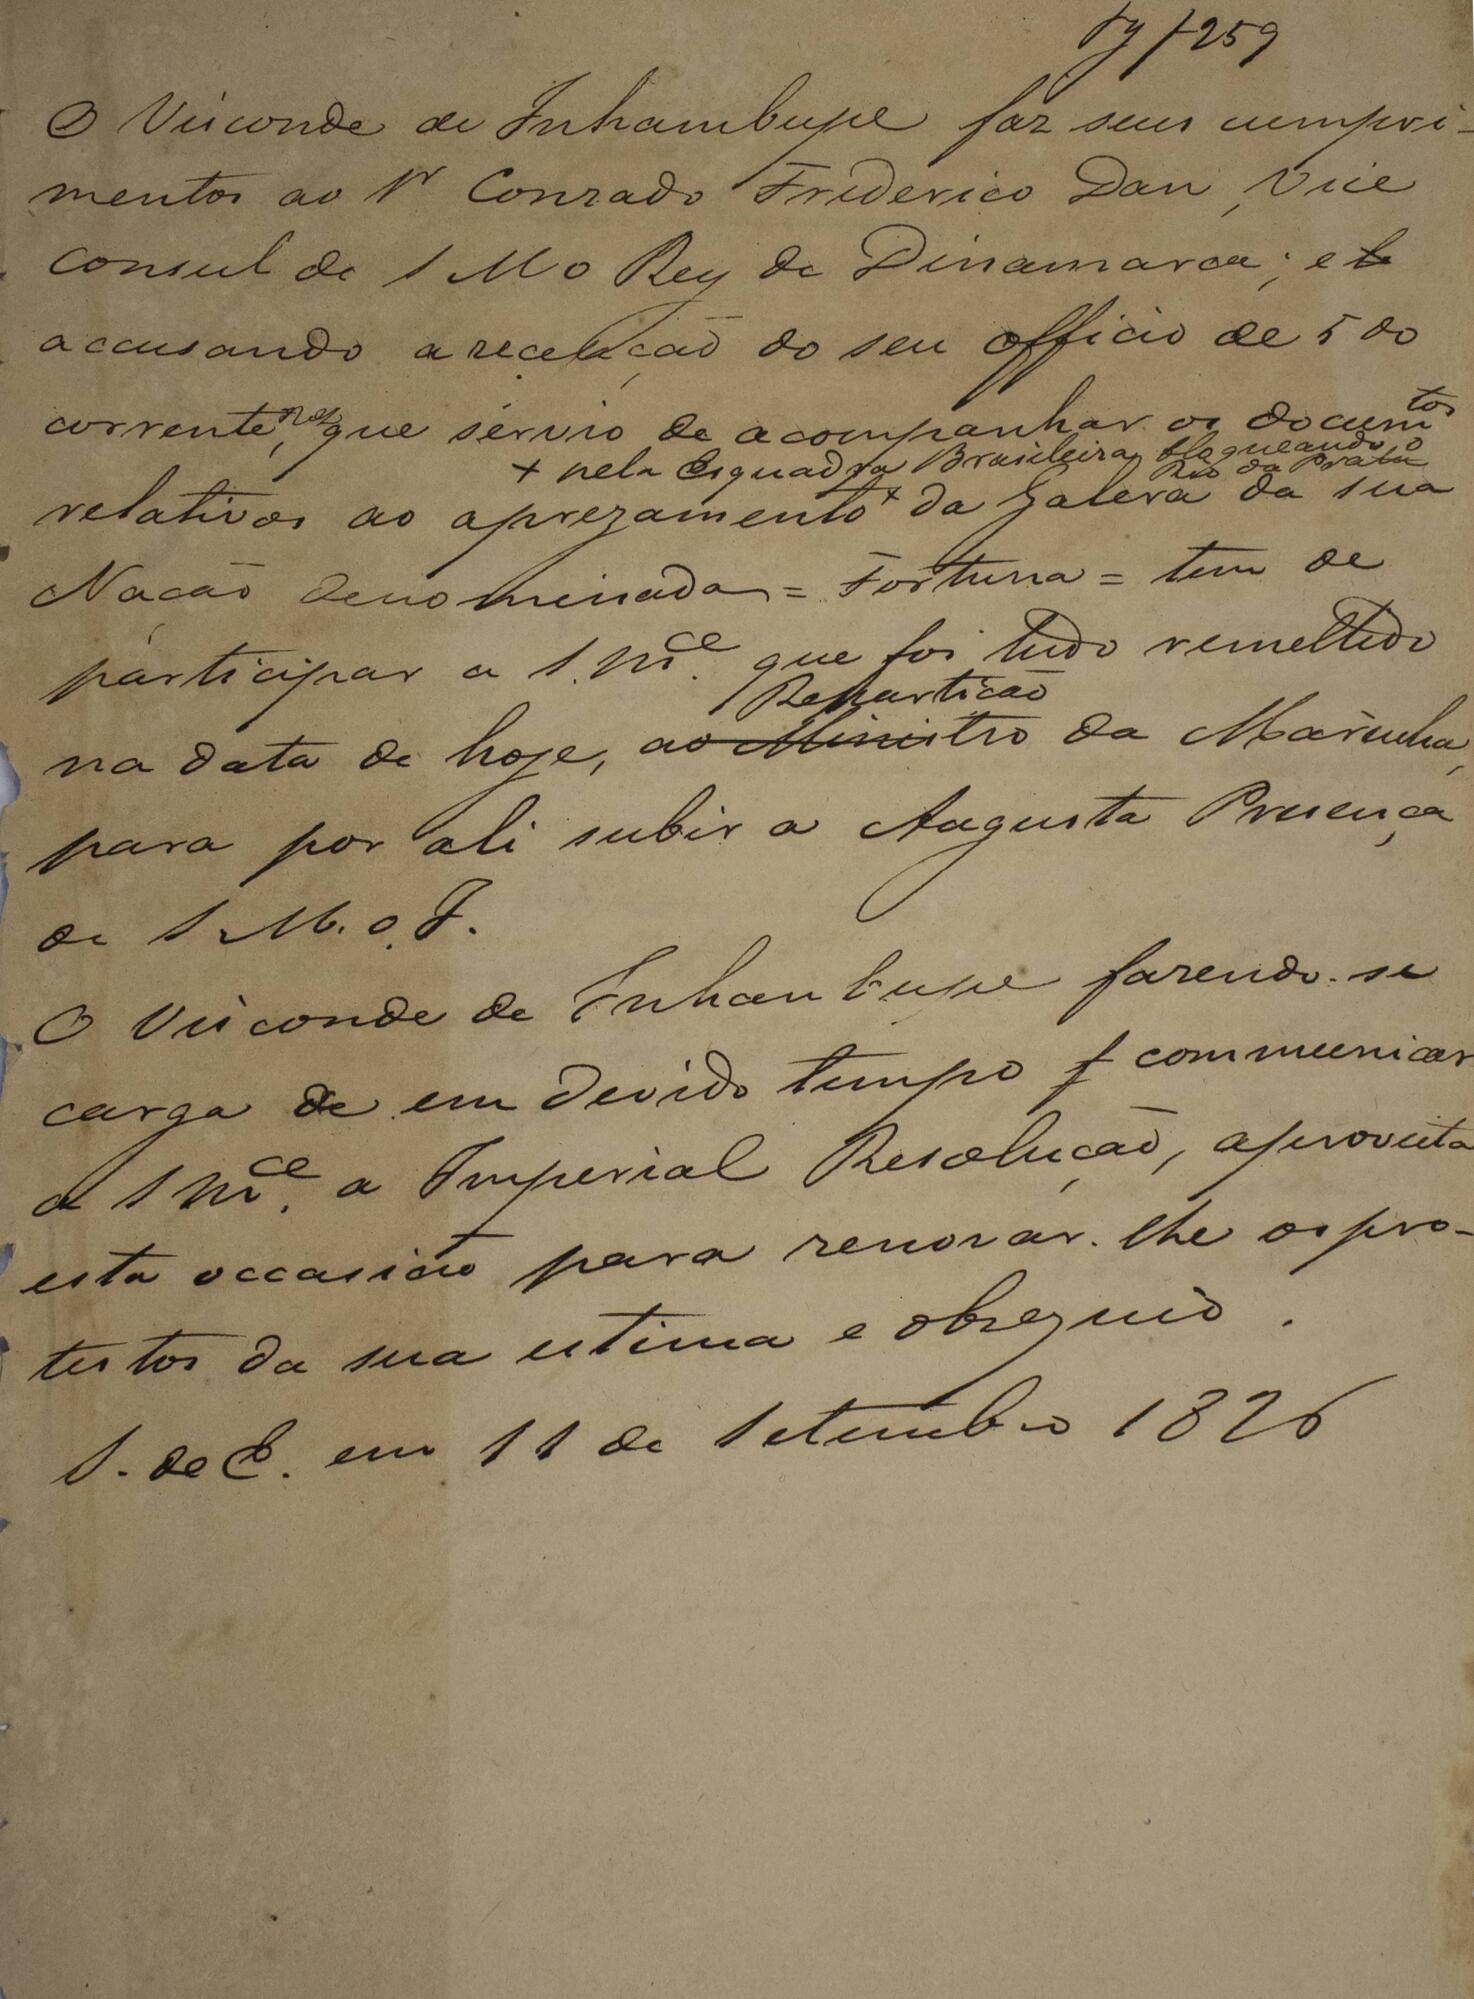 259
O Visconde de Inhambupe faz seus cumpri-
mentos ao Sr Conrado Friderico Dan, Vice
Consul de S M o Rey de Dinamarca; e
accusando a recepção do seu officio de 5 do
corrente, que servio de acompanhar os documtos
+ pela Esquadra Brasileira bloqueando o
Rio da Prata
relativos ao aprezamento + da Galera da sua
Nação denominada = Fortuna = tem de
participar a S. Mce. que foi tudo remettido
Repartição
na data de hoje, ao Ministro da Marinha,
para por ali subir a Augusta Presença
de S. M. o I.
O Visconde de Inhambupe fazendo-se
carga de em devido tempo communicar
a S Mce. a Imperial Resolução, aproveita
esta occasião para renovar-lhe os pro-
testos da sua estima e obsequio.
S. de E. em 11 de Setembro 1826